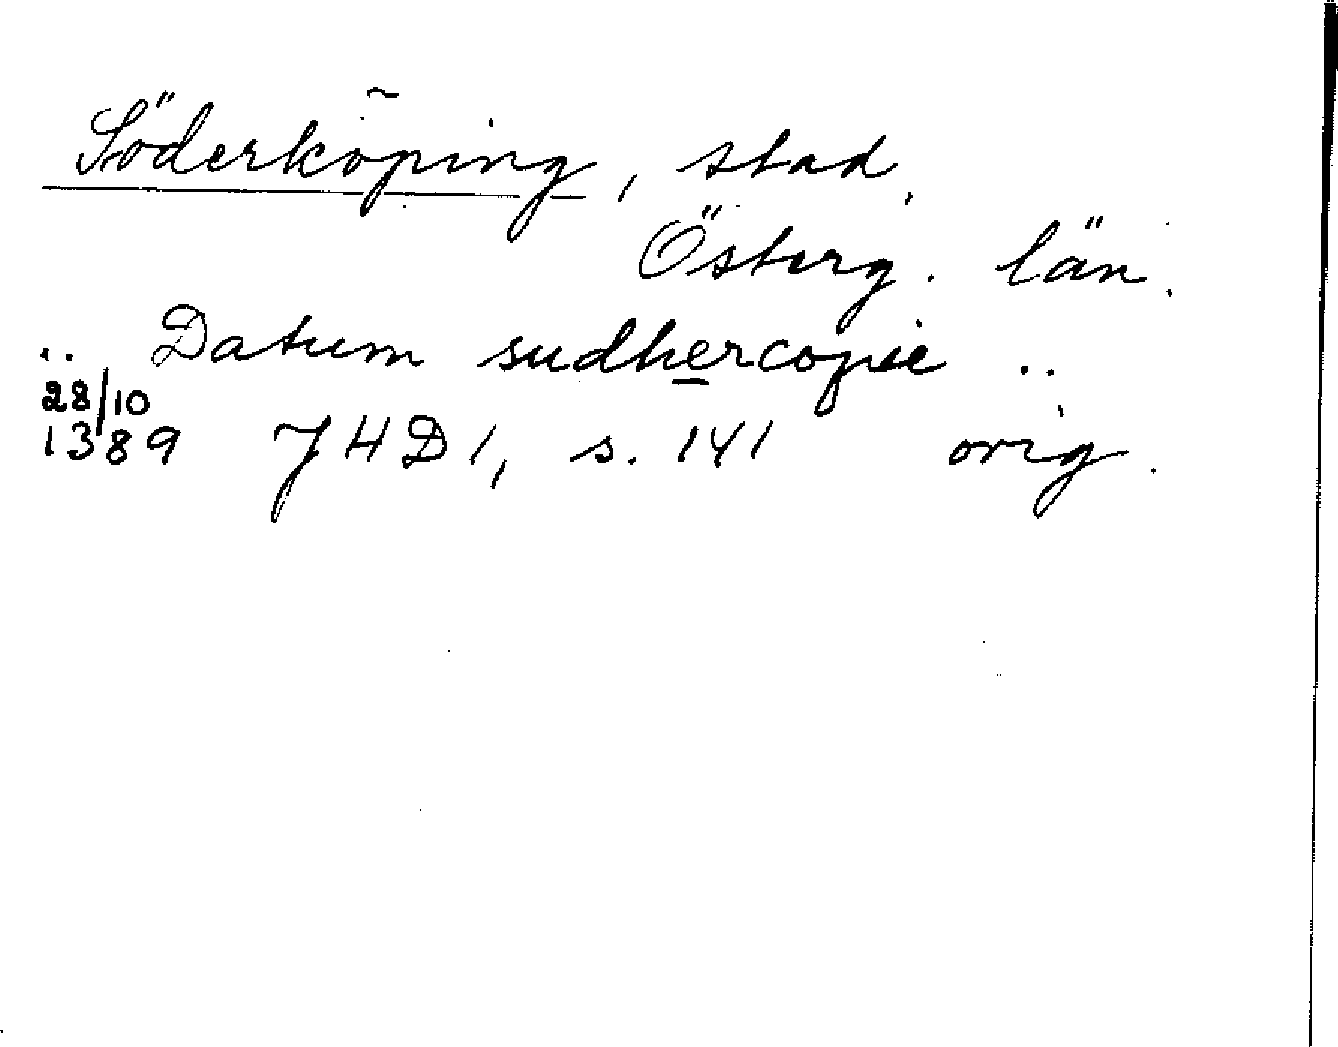 Söderköping, stad,
Österg. län.
.. Datum sudhercopie ..
28/10
1389 JHD 1, s. 141 orig.